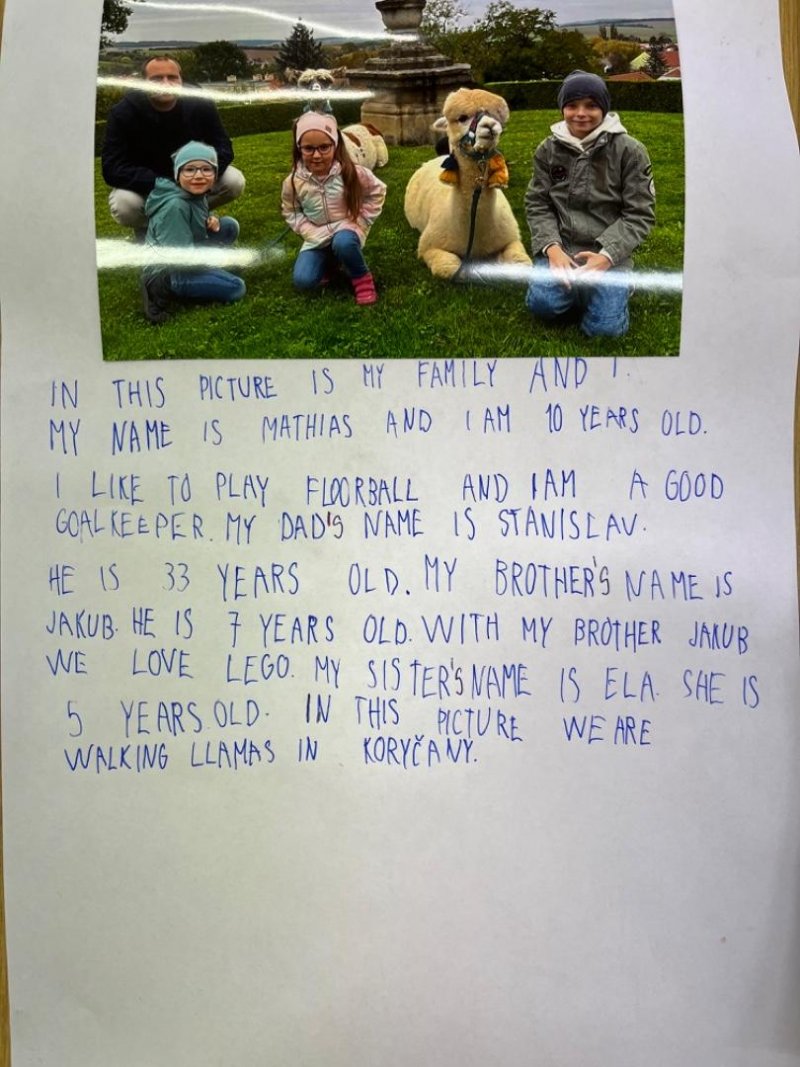 IN THIS PICTURE IS MY FAMILY AND I.
MY NAME IS MATHIAS AND I AM 10 YEARS OLD.
I LIKE TO PLAY FLOORBALL AND I AM A GOOD
GOALKEEPER. MY DAD'S NAME IS STANISLAV.
HE IS 33 YEARS OLD. MY BROTHER'S NAME IS
JAKUB. HE IS 7 YEARS OLD. WITH MY BROTHER JAKUB
WE LOVE LEGO. MY SISTER'S NAME IS ELA. SHE IS
5 YEARS OLD. IN THIS PICTURE WE ARE
WALKING LLAMAS IN KORYČANY.